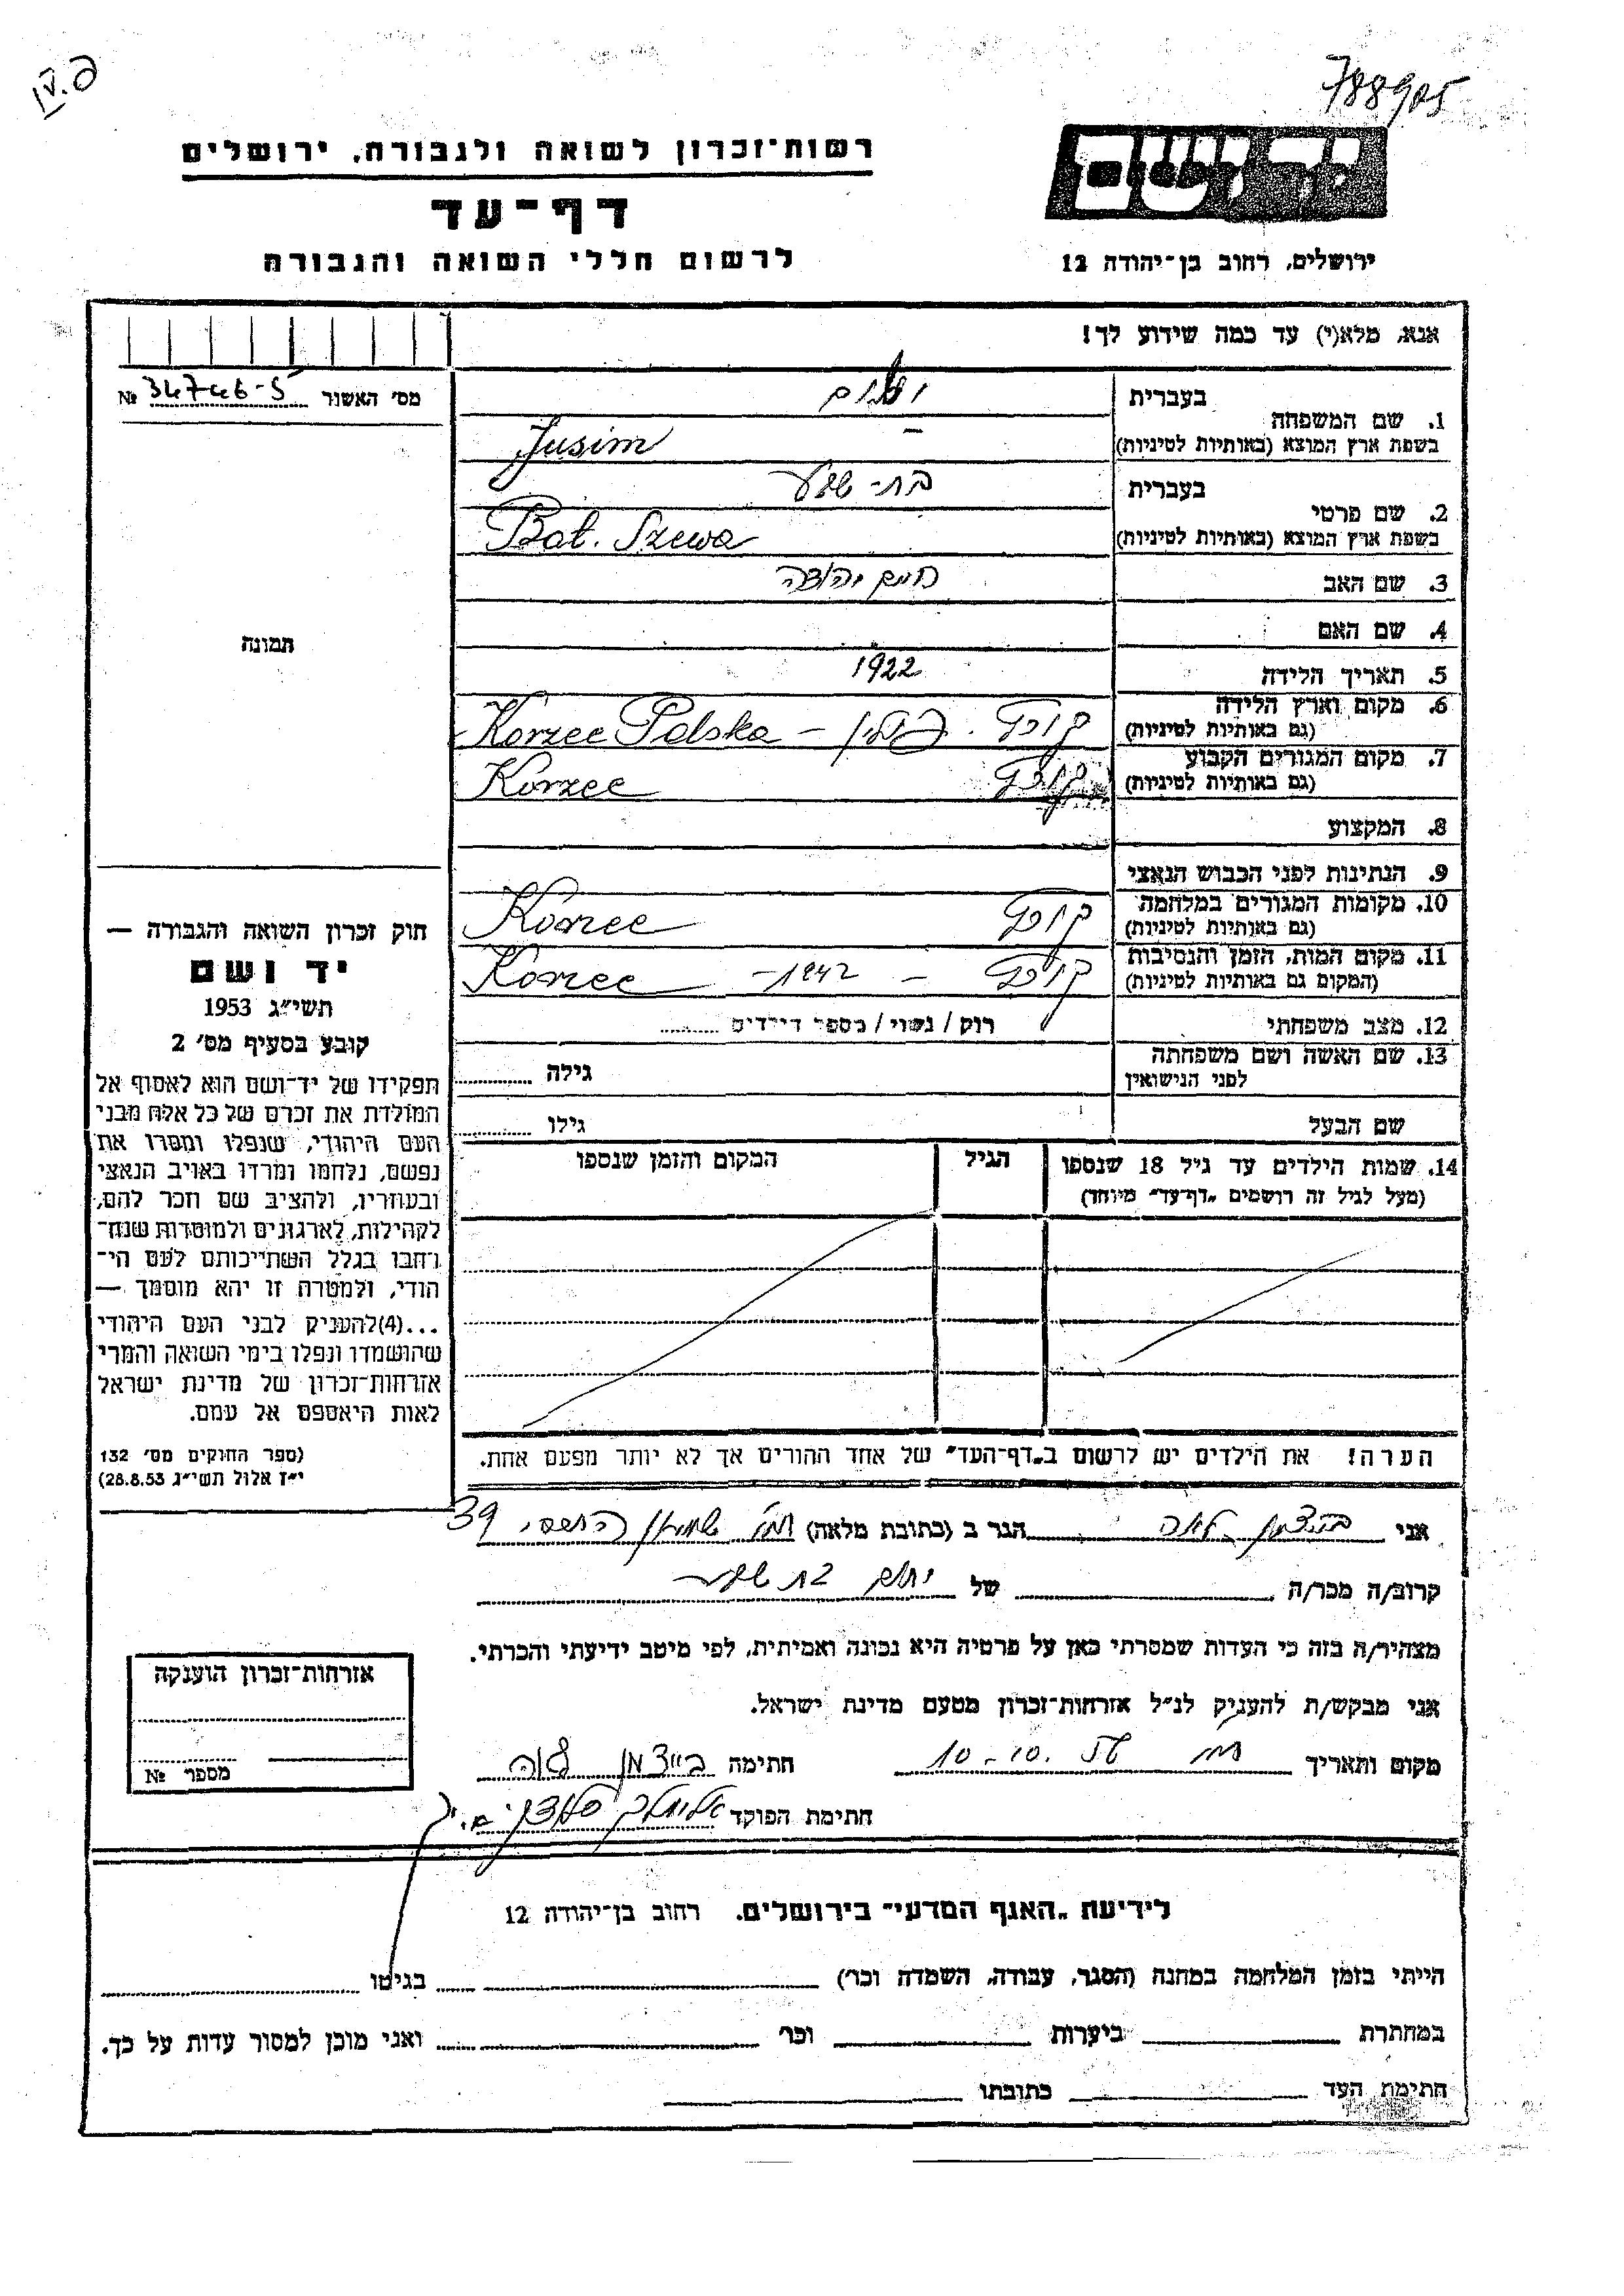 788905
רשות־זכרון לשואה ולגבורה, ירושלים
יד ושם
דף־עד
לרשום חללי השואה והגבורה
ירושלים, רחוב בן־יהודה 12
אנא, מלא(י) עד כמה שידוע לך!
מס׳ האשור № 34746-5
1. שם המשפחה
בעברית
בשפת ארץ המוצא (באותיות לטיניות) Jusim
2. שם פרטי
בעברית בת-שבע
בשפת ארץ המוצא (באותיות לטיניות) Bat. Szewa
3. שם האב חיים יהודה
4. שם האם
5. תאריך הלידה 1922
6. מקום וארץ הלידה
(גם באותיות לטיניות) קורץ. פולין – Korzec Polska
7. מקום המגורים הקבוע
(גם באותיות לטיניות) קורץ Korzec
8. המקצוע
9. הנתינות לפני הכבוש הנאצי
10. מקומות המגורים במלחמה
(גם באותיות לטיניות) קורץ Korzec
11. מקום המות, הזמן והנסיבות
(המקום גם באותיות לטיניות) קורץ – 1942 – Korzec
12. מצב משפחתי רוק / נשוי / מספר הילדים
13. שם האשה ושם משפחתה
לפני הנישואין גילה
שם הבעל גילו
14. שמות הילדים עד גיל 18 שנספו הגיל המקום והזמן שנספו
(מעל לגיל זה רושמים „דף־עד״ מיוחד)
הערה! את הילדים יש לרשום ב„דף־העד״ של אחד ההורים אך לא יותר מפעם אחת.
תמונה
חוק זכרון השואה והגבורה —
יד ושם
תשי״ג 1953
קובע בסעיף מס׳ 2
תפקידו של יד־ושם הוא לאסוף אל
המולדת את זכרם של כל אלה מבני
העם היהודי, שנפלו ומסרו את
נפשם, נלחמו ומרדו באויב הנאצי
ובעוזריו, ולהציב שם וזכר להם,
לקהילות, לארגונים ולמוסדות שנח־
רבו בגלל השתייכותם לעם הי־
הודי, ולמטרה זו יהא מוסמך —
...(4)להעניק לבני העם היהודי
שהושמדו ונפלו בימי השואה והמרי
אזרחות־זכרון של מדינת ישראל
לאות היאספם אל עמם.
(ספר החוקים מס׳ 132
י״ז אלול תשי״ג 28.8.53)
אני לאה הגר ב (כתובת מלאה) 39
קרוב/ה מכר/ה של בת שבע
מצהיר/ה בזה כי העדות שמסרתי כאן על פרטיה היא נכונה ואמיתית, לפי מיטב ידיעתי והכרתי.
אני מבקש/ת להעניק לנ״ל אזרחות־זכרון מטעם מדינת ישראל.
מקום ותאריך 10-10. חתימה בייצמן לאה
חתימת הפוקד
אזרחות־זכרון הוענקה
מספר №
לידיעת „האגף המדעי״ בירושלים. רחוב בן־יהודה 12
הייתי בזמן המלחמה במחנה (הסגר, עבודה, השמדה וכר׳) בגיטו
במחתרת ביערות וכר׳ ואני מוכן למסור עדות על כך.
חתימת העד כתובתו